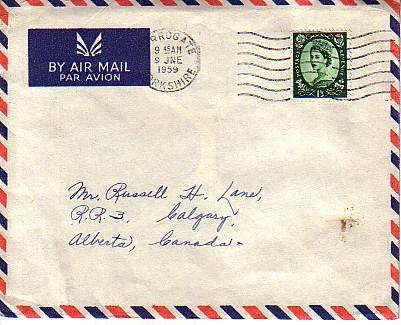 BY AIR MAIL
PAR AVION
RROGATE
9 45AM
9 JNE
1959
RKSHIRE
Mr. Russell H. Lane,
R.R.3, Calgary,
Alberta, Canada-